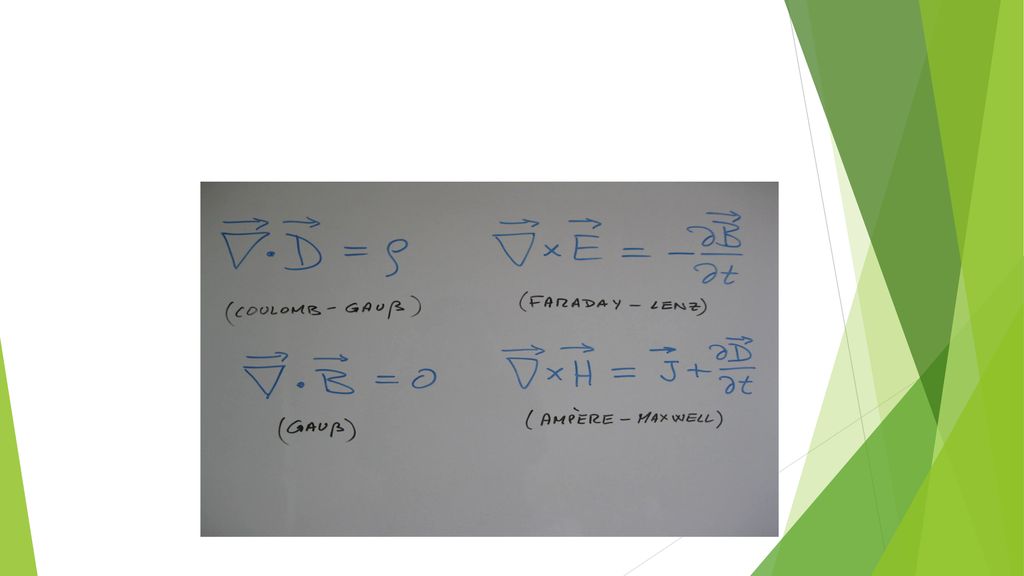 ∇⃗ · D⃗ = ρ
(COULOMB - GAUβ)
∇⃗ × E⃗ = - ∂B⃗/∂t
(FARADAY - LENZ)
∇⃗ · B⃗ = 0
(GAUβ)
∇⃗ × H⃗ = J⃗ + ∂D⃗/∂t
(AMPÈRE - MAXWELL)